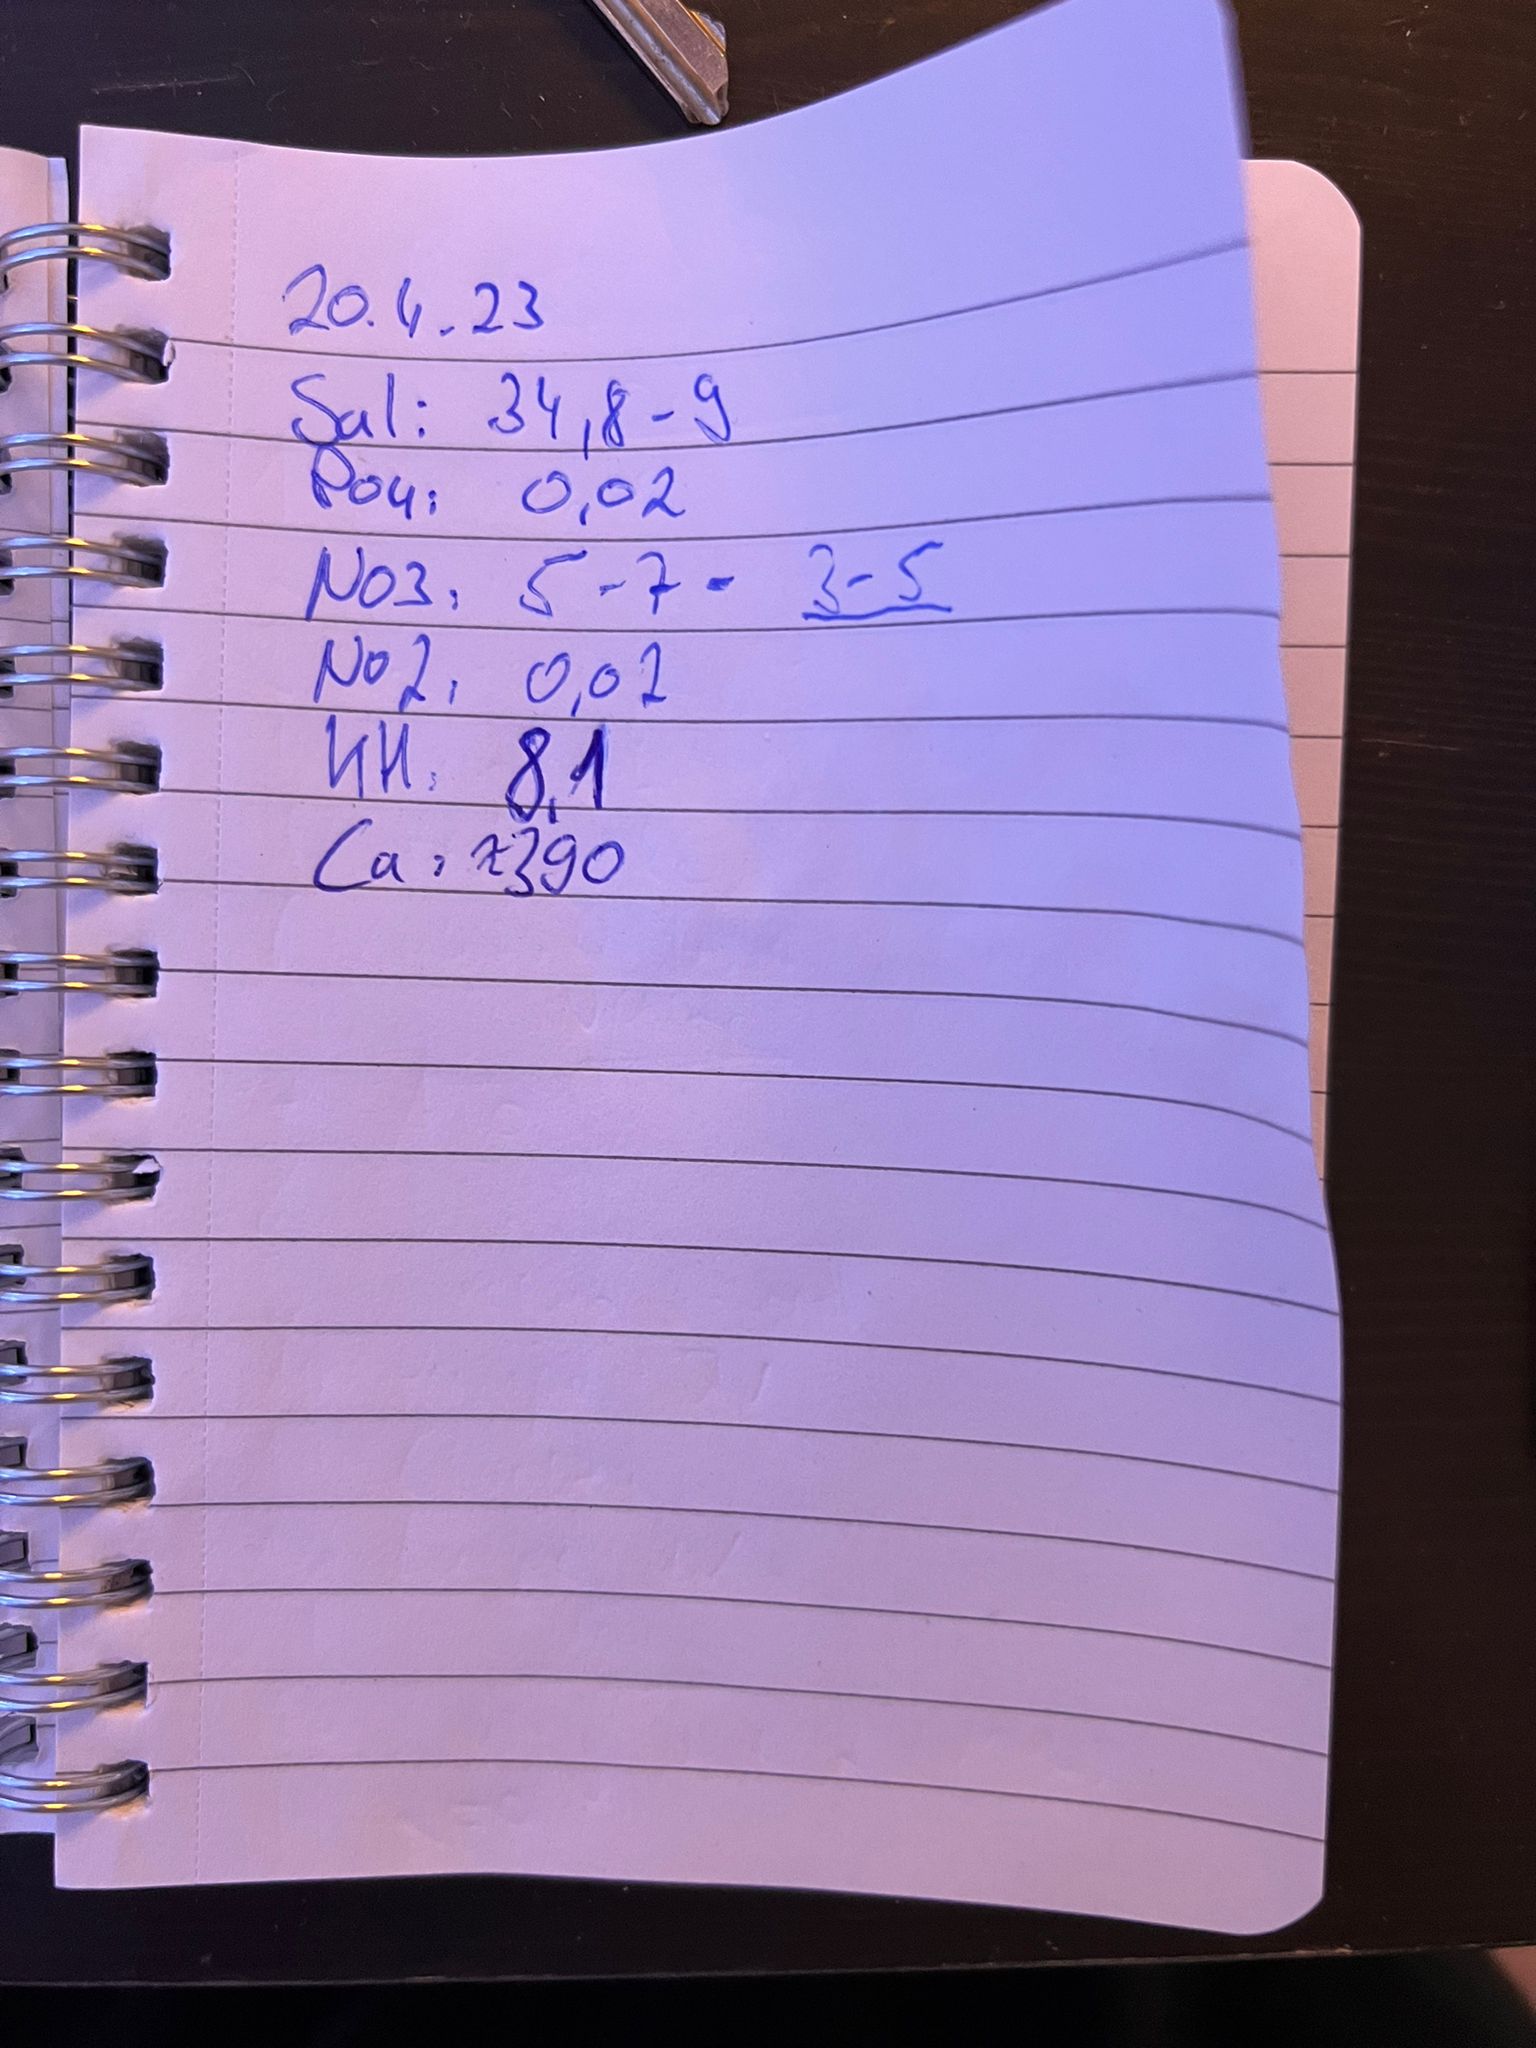 20.4.23
Sal: 34,8-9
Po4: 0,02
NO3: 5-7- 3-5
No2: 0,02
KH: 8,1
Ca: ≈390